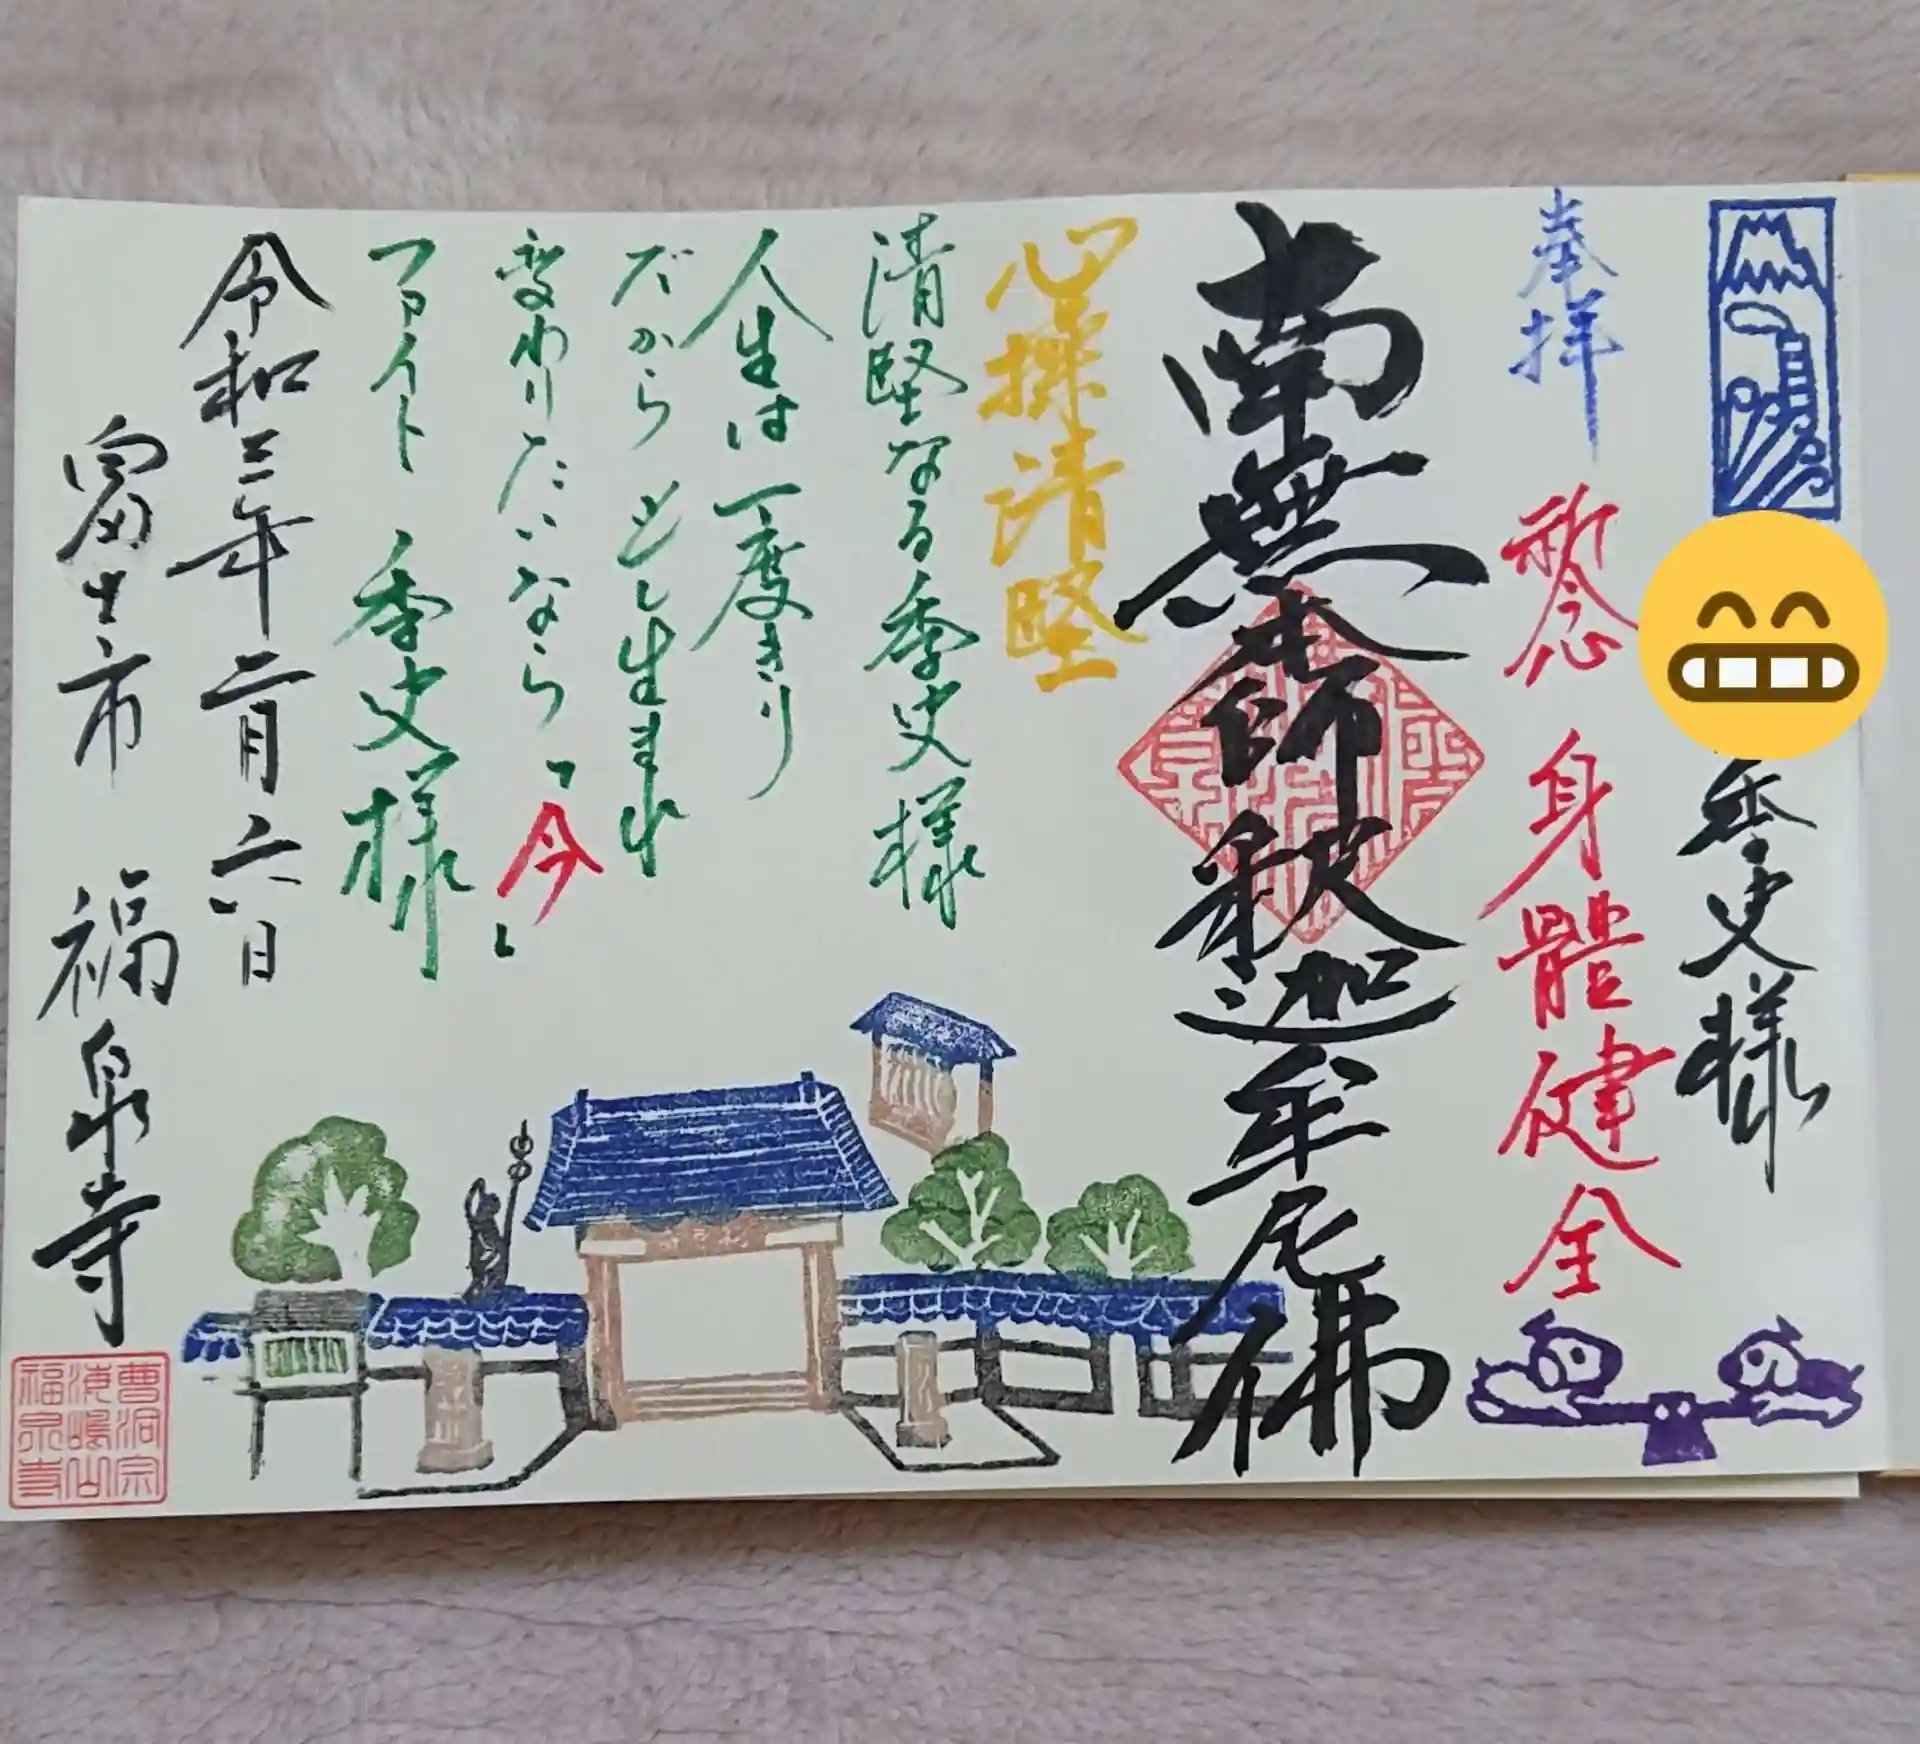 季史様
奉拝
祈念 身體健全
南無本師釈迦牟尼佛
心操清堅
清堅なる季史様
人生は一度きり
だから もし生まれ
変わりたいなら「今」
ファイト 季史様
令和三年二月六日
富士市 福泉寺
曹洞宗
海嶋山
福泉寺